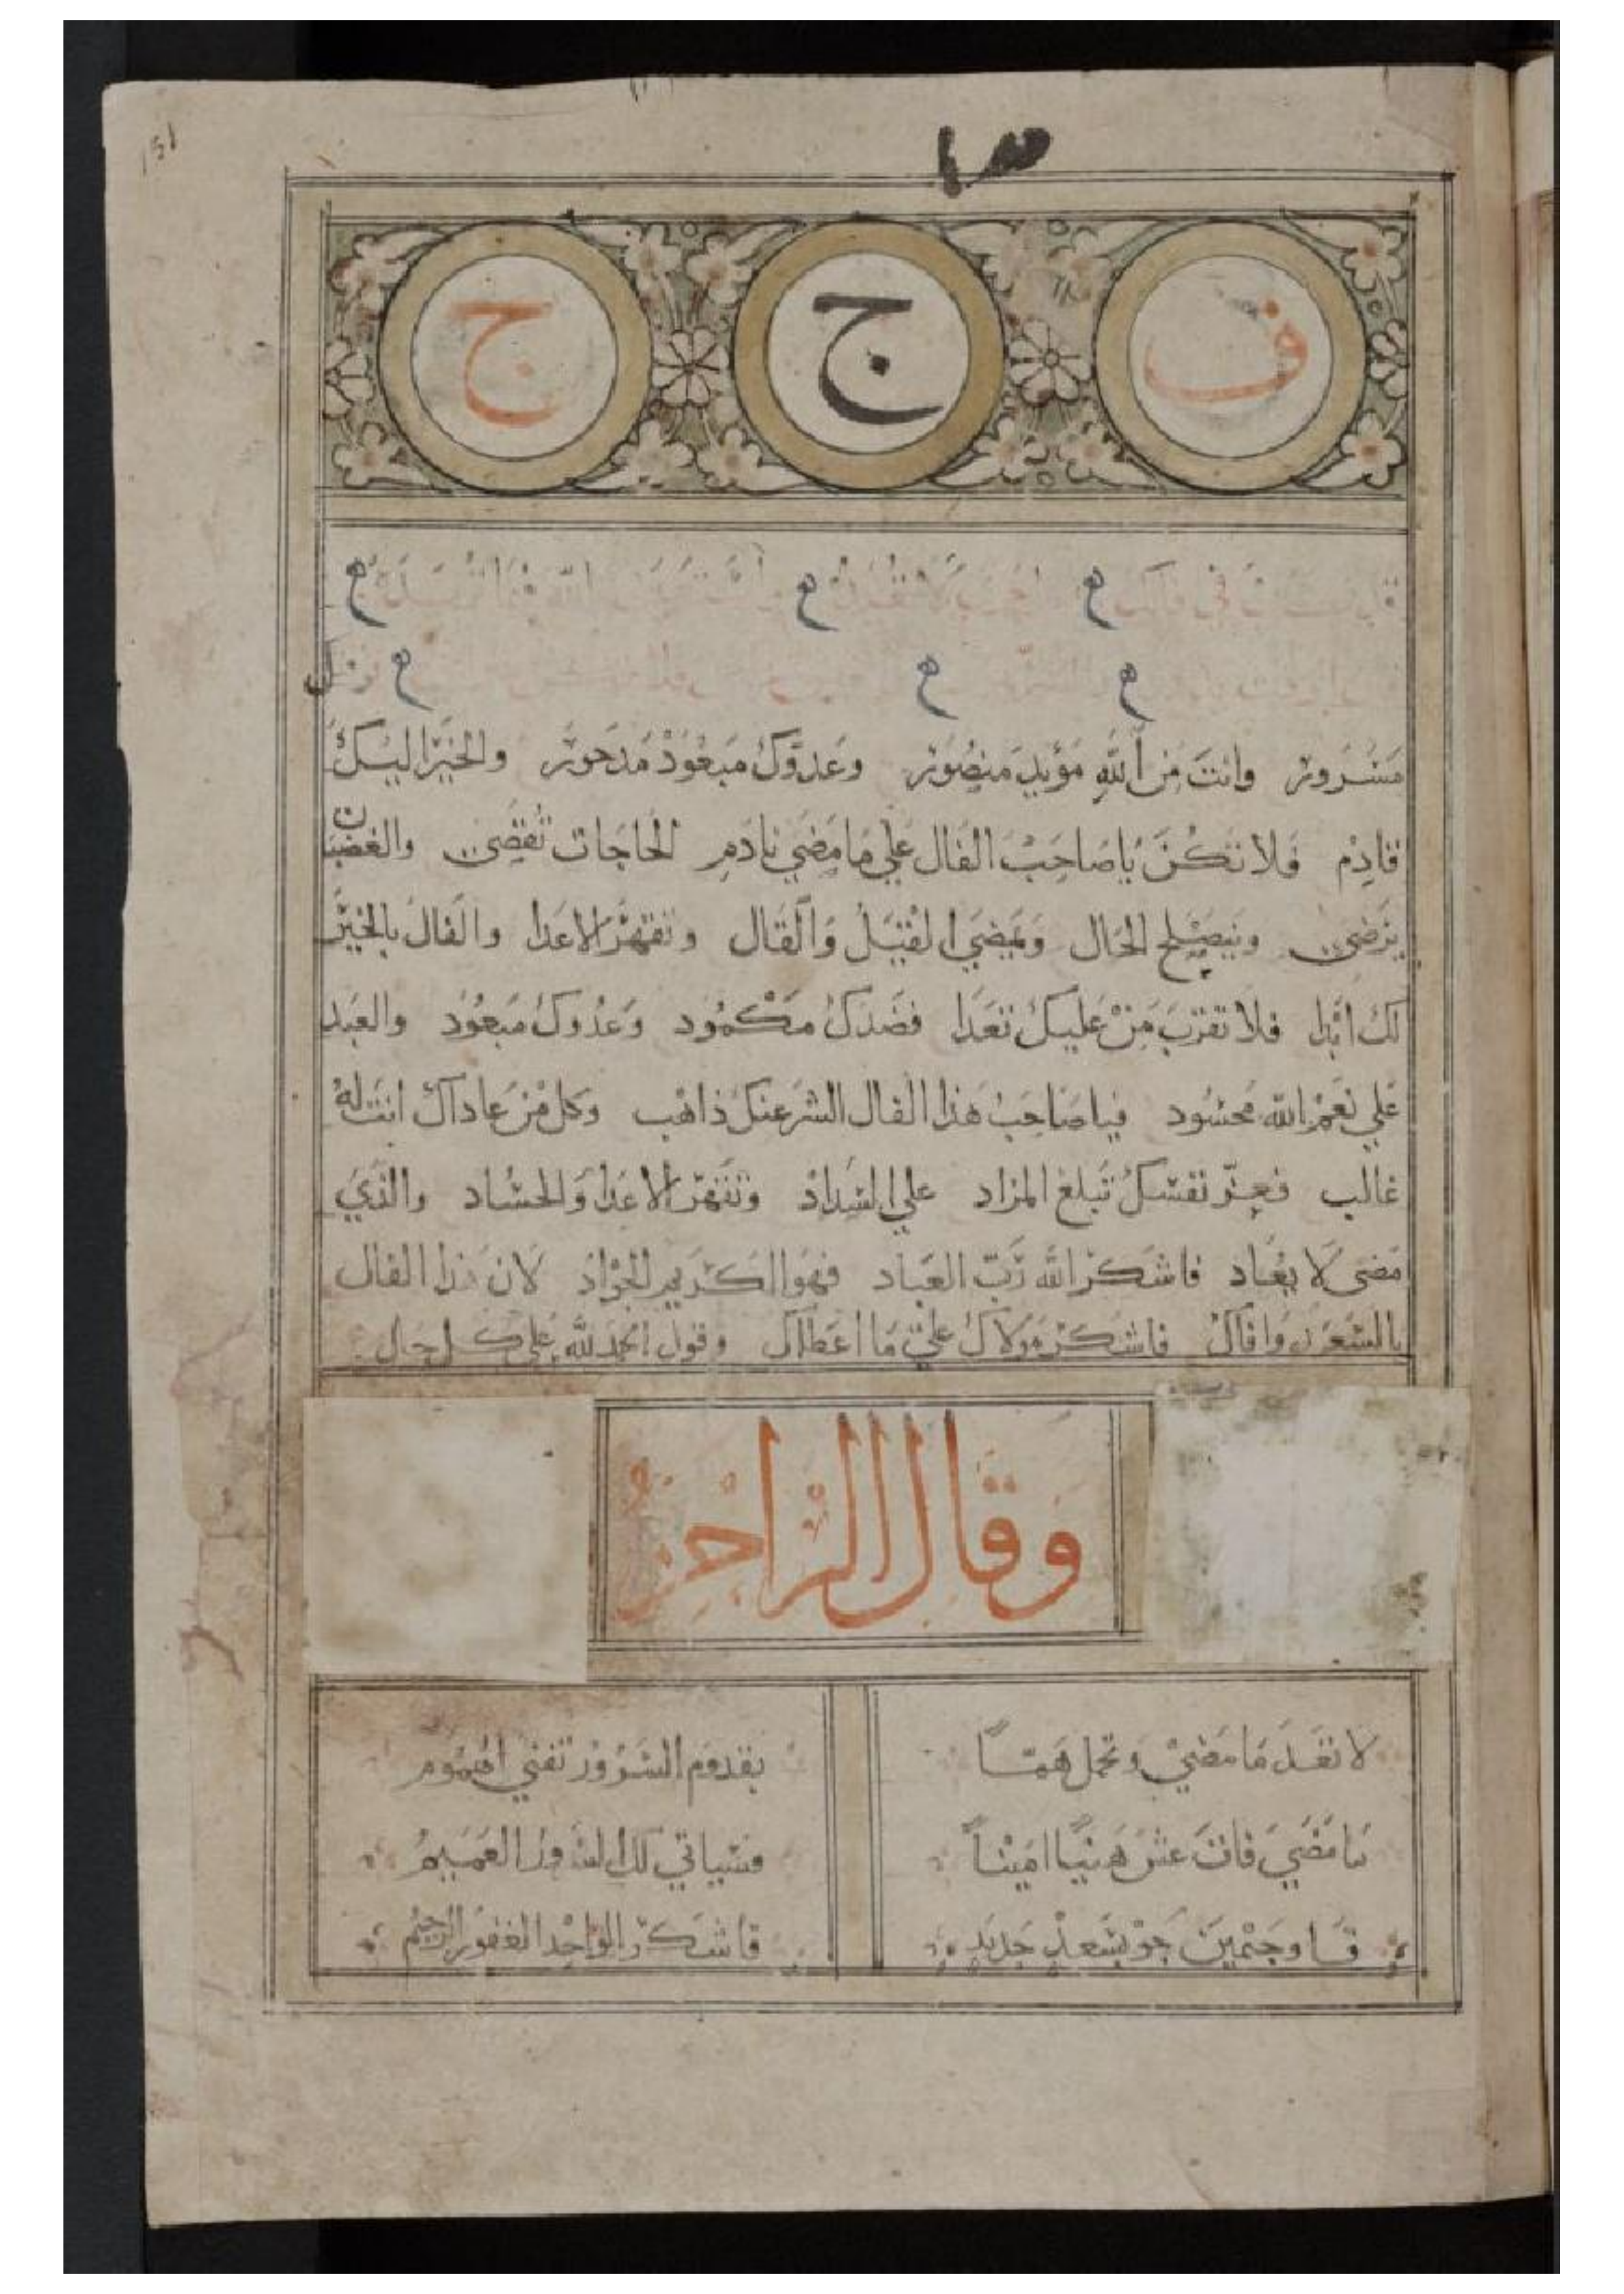 151
ف ج ج
مسرور وانت من الله مؤيد منصور وعدوك مبعود مدحور والخير اليك
قادم فلا تكن يا صاحب الفال علي ما مضي نادم الحاجات تقضى والغضبان
يرضى وينصلح الحال ويمضي القيل والقال وتقهر الاعدا والفال بالخير
لك ابدا فلا تقرب من عليك تعدا فضدك مكمود وعدوك مبعود والعبد
علي نعم الله محسود فيا صاحب هذا الفال الشر عنك ذاهب وكل من عاداك انت له
غالب فعز نفسك تبلغ المراد علي السداد وتقهر الاعدا والحساد والذي
مضى لا يعاد فاشكر الله رب العباد فهو الكريم الجواد لان هذا الفال
بالسعد وافاك فاشكر مولاك علي ما اعطاك وقول الحمد لله على كل حال
وقال الراجز
لا تعد ما مضي وتحمل هما بقدوم السرور تفني الهموم
ما مضي فات عش هنيا امينا فسياتي لك السرور العميم
فا وجيمين جو بسعد جديد فاشكر الواحد الغفور الرحيم